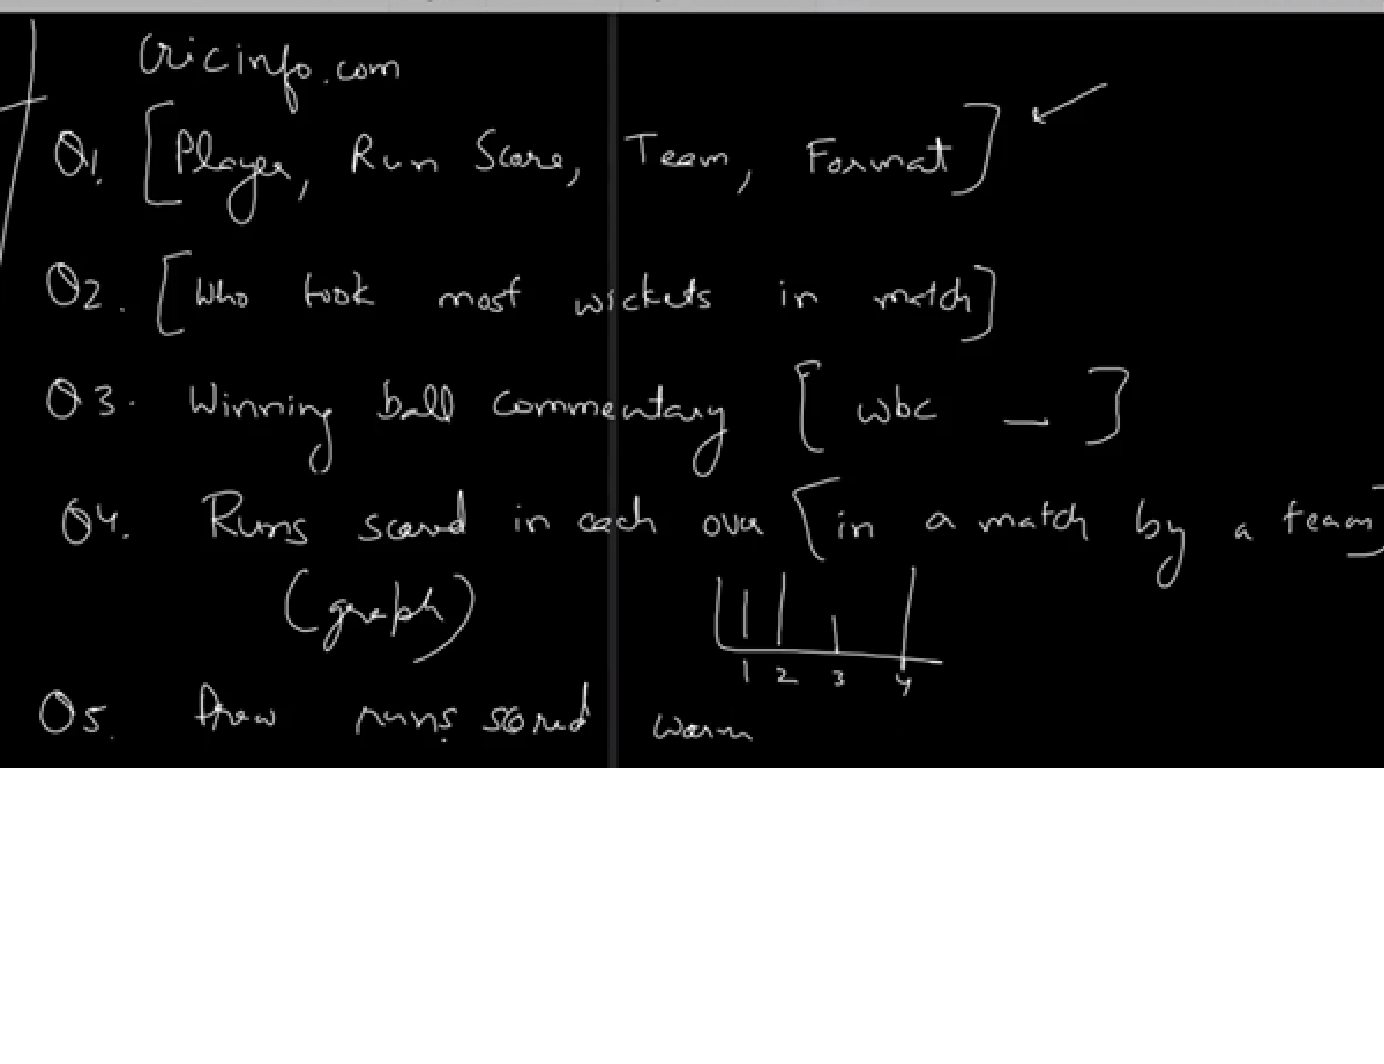 Cricinfo.com
Q1. [Player, Run Score, Team, Format]
Q2. [Who took most wickets in match]
Q3. Winning ball commentary [wbc _ ]
Q4. Runs scored in each over [in a match by a team]
(graph)
1 2 3 4
Q5. Draw runs scored worm